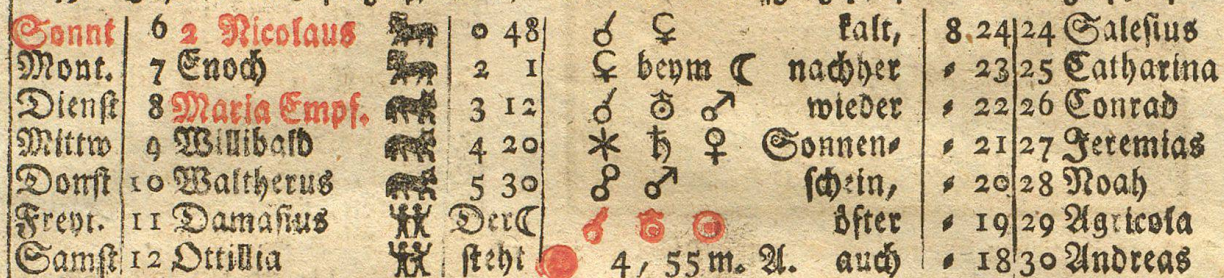 Sonnt 6 2 Nicolaus 0 48 ☌ ⚳ kalt, 8.24 24 Salesius
Mont. 7 Enoch 2 1 ⚳ beym ☾ nachher ⸗ 23 25 Catharina
Dienst 8 Maria Empf. 3 12 ☌ ⛢ ♂ wieder ⸗ 22 26 Conrad
Mittw 9 Willibald 4 20 ⚹ ♄ ♀ Sonnen⸗ ⸗ 21 27 Jeremias
Donst 10 Waltherus 5 30 ☍ ♂ schein, ⸗ 20 28 Noah
Freyt. 11 Damasius Der ☾ ☌ ⛢ ☉ öfter ⸗ 19 29 Agricola
Samst 12 Ottillia steht 4, 55 m. A. auch ⸗ 18 30 Andreas